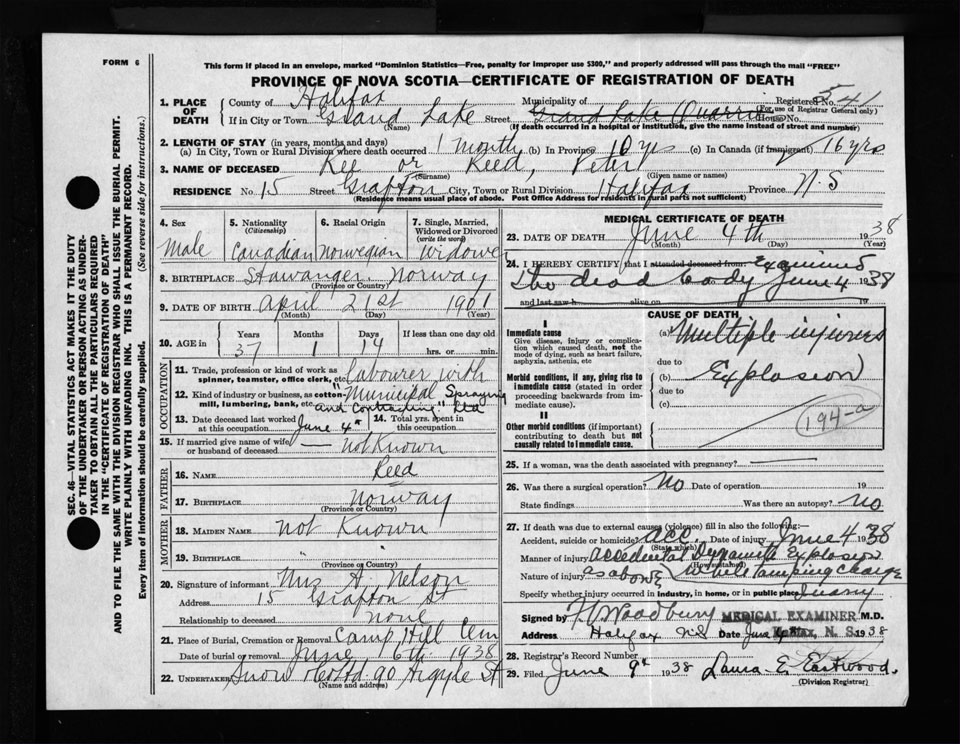 FORM 6
This form if placed in an envelope, marked "Dominion Statistics—Free, penalty for improper use $300," and properly addressed will pass through the mail "FREE"
PROVINCE OF NOVA SCOTIA—CERTIFICATE OF REGISTRATION OF DEATH
1. PLACE OF DEATH
County of Halifax Municipality of Registered No. 541
(For use of Registrar General only)
If in City or Town Grand Lake Street Grand Lake (Quarrie House No.
(Name) (If death occurred in a hospital or institution, give the name instead of street and number)
2. LENGTH OF STAY (in years, months and days)
(a) In City, Town or Rural Division where death occurred 1 month (b) In Province 10 yrs (c) In Canada (if immigrant) 16 yrs
3. NAME OF DECEASED Kee or Reed, Peter
(Surname) (Given name or names)
RESIDENCE No 15 Street Grafton City, Town or Rural Division Halifax Province N.S
(Residence means usual place of abode. Post Office Address for residents in rural parts not sufficient)
4. Sex Male
5. Nationality (Citizenship) Canadian
6. Racial Origin Norwegian
7. Single, Married, Widowed or Divorced (write the word) Widower
8. BIRTHPLACE Stawanger. Norway
(Province or Country)
9. DATE OF BIRTH April 21st 1901
(Month) (Day) (Year)
10. AGE in Years 37 Months 1 Days 14 If less than one day old hrs. or min.
OCCUPATION
11. Trade, profession or kind of work as spinner, teamster, office clerk, etc. labourer with
12. Kind of industry or business, as cotton mill, lumbering, bank, etc. "Municipal Spraying and Contracting" Ltd
13. Date deceased last worked at this occupation June 4th
14. Total yrs. spent in this occupation
15. If married give name of wife or husband of deceased — not Known
FATHER
16. Name Reed
17. Birthplace Norway
(Province or Country)
MOTHER
18. Maiden Name not Known
19. Birthplace " "
(Province or Country)
20. Signature of informant Mrs A. Nelson
Address 15 Grafton St
Relationship to deceased none
21. Place of Burial, Cremation or Removal Camp Hill Cem
Date of burial or removal June 6th 1938
22. UNDERTAKER Snow 90 Argyle St
(Name and address)
MEDICAL CERTIFICATE OF DEATH
23. DATE OF DEATH June 4th 1938
(Month) (Day) (Year)
24. I HEREBY CERTIFY that I attended deceased from Examined
the dead body June 4 1938
and last saw h alive on 19
CAUSE OF DEATH
I
Immediate cause
Give disease, injury or complication which caused death, not the mode of dying, such as heart failure, asphyxia, asthenia, etc
(a) Multiple injuries
due to
Morbid conditions, if any, giving rise to immediate cause (stated in order proceeding backwards from immediate cause).
(b) Explosion
due to
(c)
II
Other morbid conditions (if important) contributing to death but not causally related to immediate cause.
194-a
25. If a woman, was the death associated with pregnancy?
26. Was there a surgical operation? No Date of operation 19
State findings Was there an autopsy? No
27. If death was due to external causes (violence) fill in also the following:—
Accident, suicide or homicide? Acc. Date of injury June 4 1938
(State which)
Manner of injury Accidental Dynamite Explosion
(How sustained)
Nature of injury as above while tamping charge
Specify whether injury occurred in industry, in home, or in public place Quarry
Signed by Woodbury MEDICAL EXAMINER M.D.
Address Halifax NS Date June HALIFAX, N. S. 1938
28. Registrar's Record Number
29. Filed June 9th 1938 Laura E. Eastwood.
(Division Registrar)
SEC. 46—VITAL STATISTICS ACT MAKES IT THE DUTY OF THE UNDERTAKER OR PERSON ACTING AS UNDERTAKER TO OBTAIN ALL THE PARTICULARS REQUIRED IN THE "CERTIFICATE OF REGISTRATION OF DEATH" AND TO FILE THE SAME WITH THE DIVISION REGISTRAR WHO SHALL ISSUE THE BURIAL PERMIT.
WRITE PLAINLY WITH UNFADING INK. THIS IS A PERMANENT RECORD.
Every item of information should be carefully supplied. (See reverse side for instructions.)